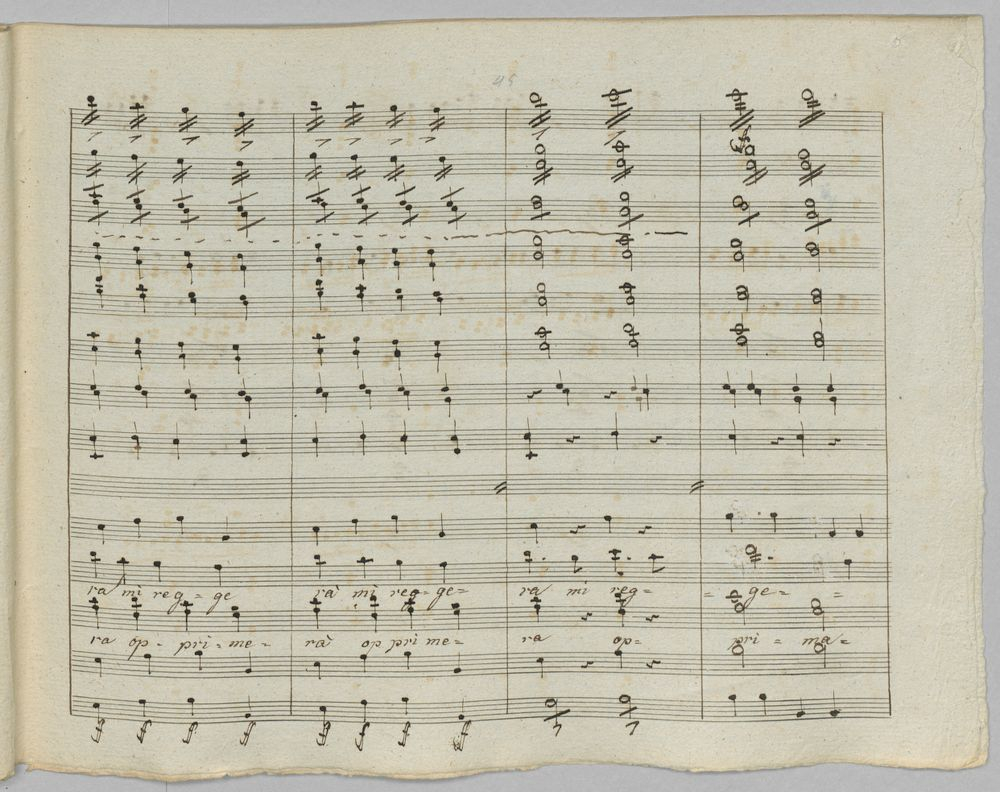 45
ra mi reg = ge rà mi reg = ge = ra mi reg = = ge = =
ra op = pri = me = rà op pri me = ra op = pri = ma =